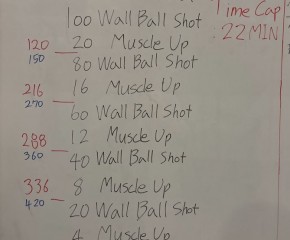 100 Wall Ball Shot
Time Cap
: 22 MIN
120 20 Muscle Up
150 80 Wall Ball Shot
216 16 Muscle Up
270 60 Wall Ball Shot
288 12 Muscle Up
360 40 Wall Ball Shot
336 8 Muscle Up
420 20 Wall Ball Shot
4 Muscle Up